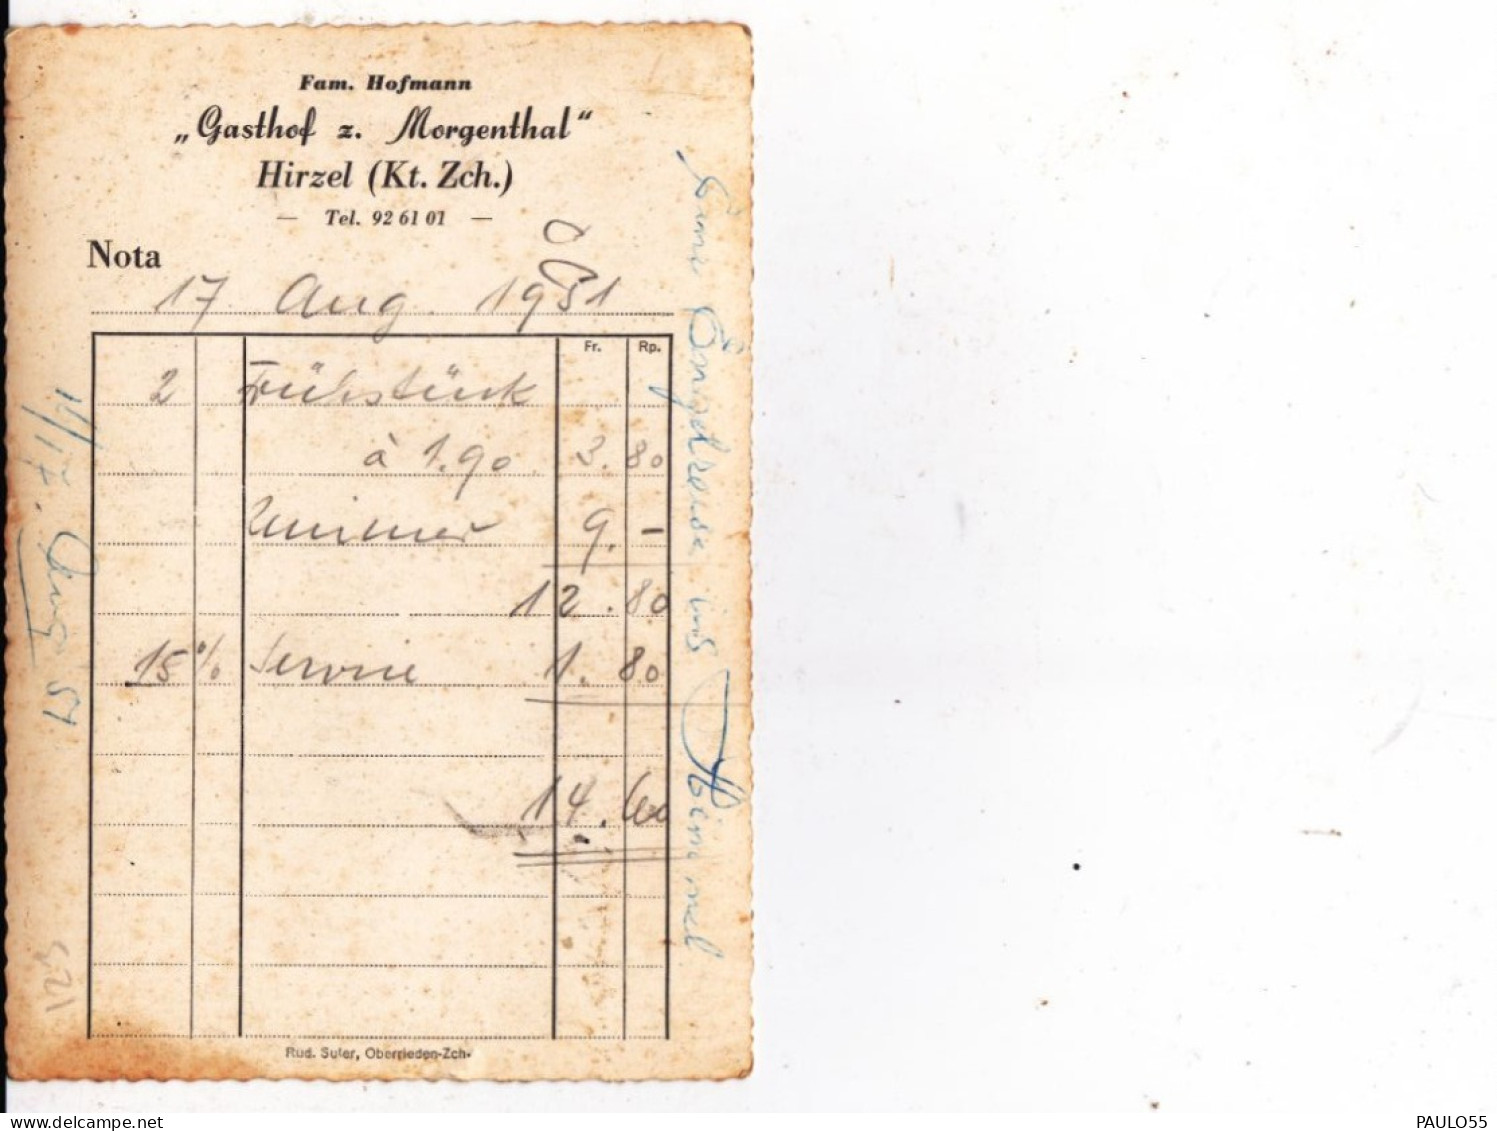 Fam. Hofmann
„Gasthof z. Morgenthal“
Hirzel (Kt. Zch.)
— Tel. 92 61 01 —
Nota
17 Aug. 1951
Fr. Rp.
2 Frühstück
à 1.90. 3.80
Zimmer 9.-
12.80
15% Service 1.80
14.60
Rud. Suter, Oberrieden-Zch.
ins Himmel
16/17. Aug 51
125
PAULO55